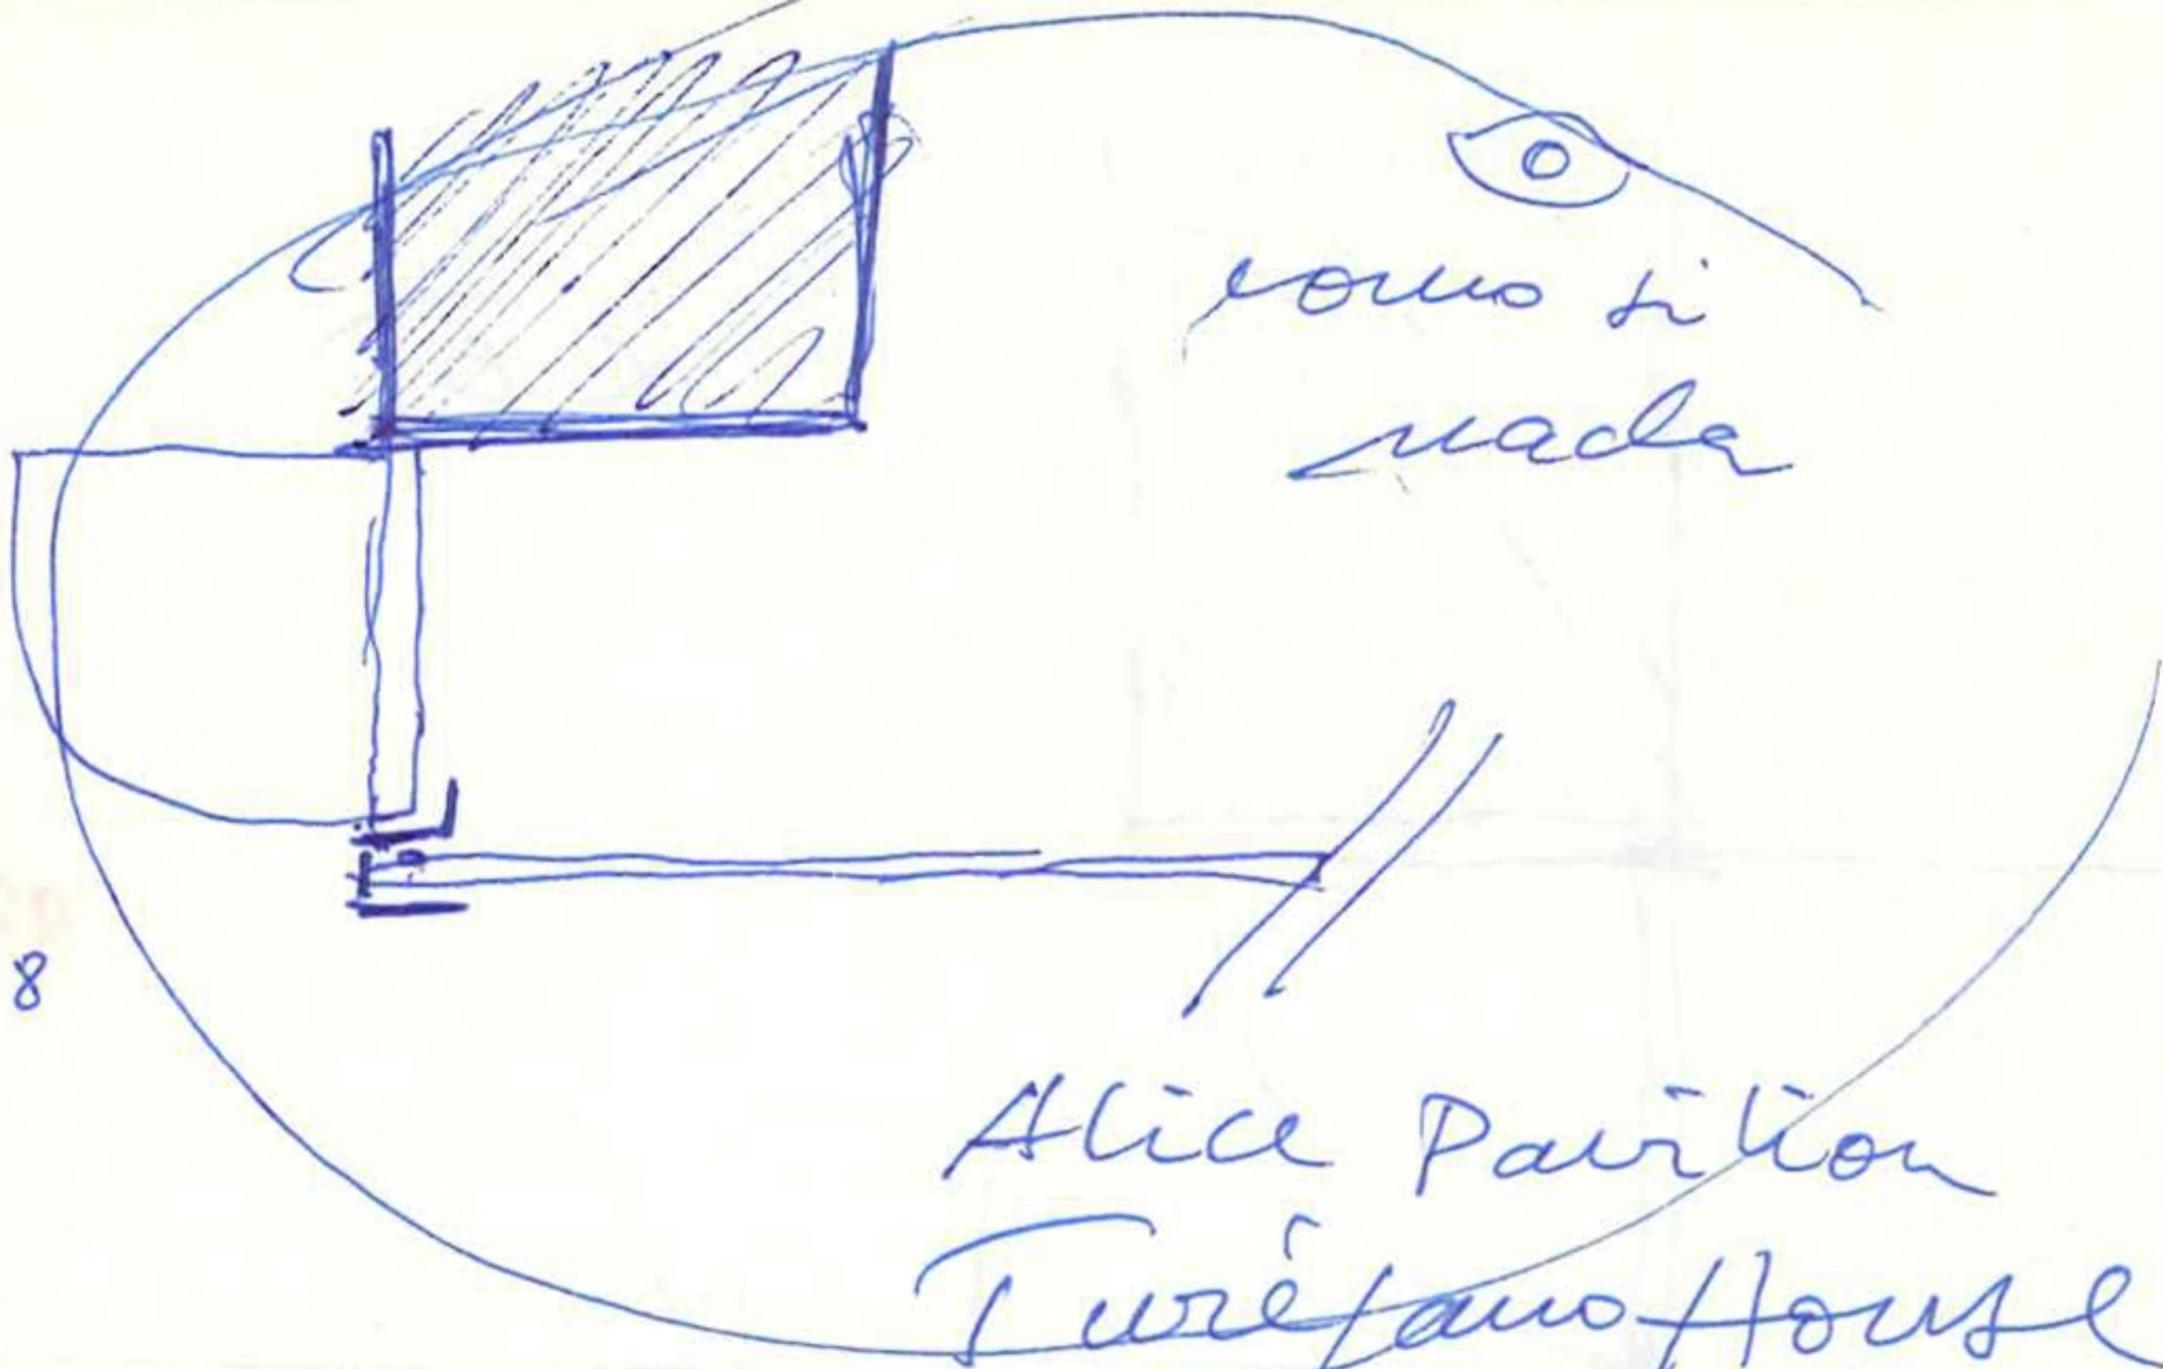 como si
nada
8
Alice Pavilion
Turégano House